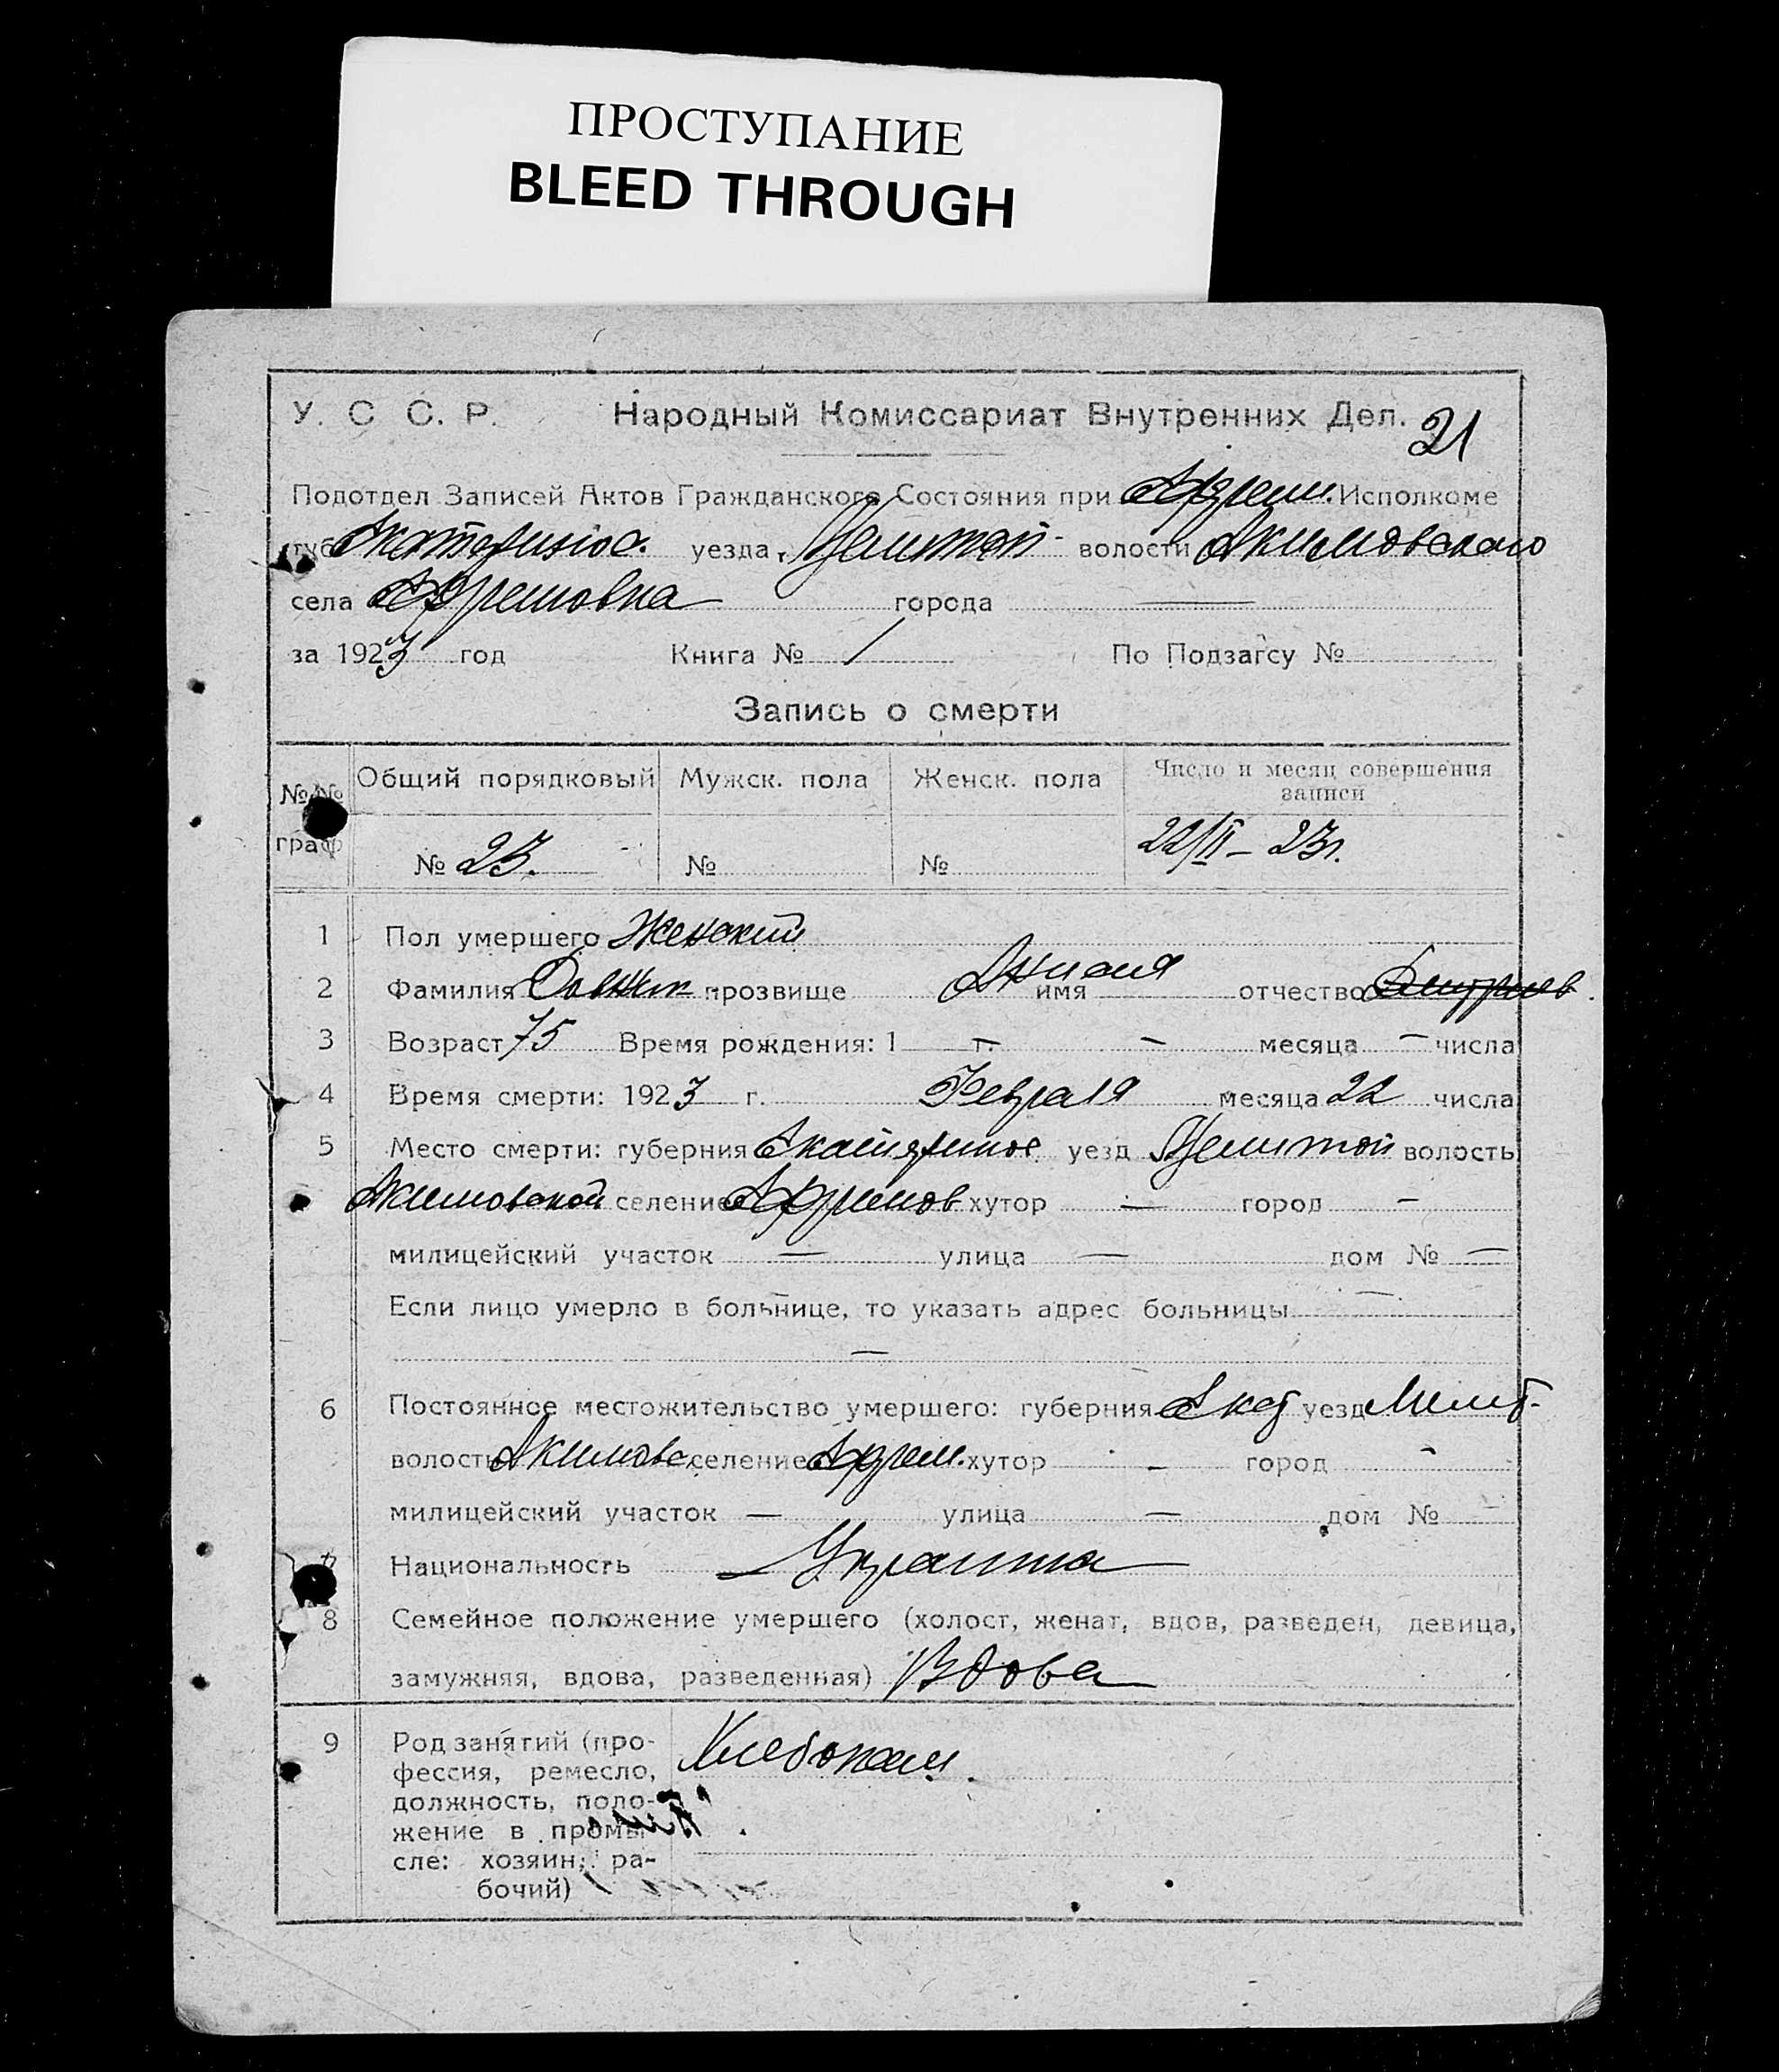 ПРОСТУПАНИЕ
BLEED THROUGH
У. С С. Р. Народный Комиссариат Внутренних Дел. 21
Подотдел Записей Актов Гражданского Состояния при Исполкоме
губ. уезда волости Акимовского
села города —
за 1923 год Книга № 1 По Подзагсу №
Запись о смерти
№№ граф
Общий порядковый Мужск. пола Женск. пола Число и месяц совершения записи
№ 23. № № 22/II – 23г.
1 Пол умершего Женский
2 Фамилия прозвище имя отчество
3 Возраст 75 Время рождения: 1 — г. — месяца — числа
4 Время смерти: 1923 г. Февраля месяца 22 числа
5 Место смерти: губерния уезд волость
Акимовской селение хутор — город —
милицейский участок — улица — дом № —
Если лицо умерло в больнице, то указать адрес больницы —
—
6 Постоянное местожительство умершего: губерния Екат уезд Мелит-
волость Акимовс. селение хутор — город -
милицейский участок — улица — дом № —
7 Национальность —
8 Семейное положение умершего (холост, женат, вдов, разведен, девица,
замужняя, вдова, разведенная) Вдова
9 Род занятий (про- Хлебопаш.
фессия, ремесло,
должность, поло-
жение в промы
сле: хозяин, ра-
бочий)